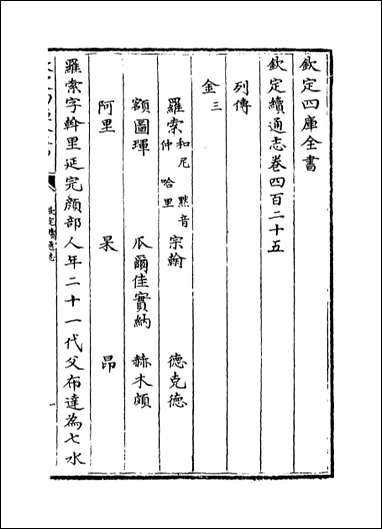 欽定四庫全書
欽定續通志卷四百二十五
列傳
金三
羅索 和尼 黙音 仲 哈里 宗翰 德克德
額圖琿 瓜爾佳實納 赫木頗
阿里 杲 昂
羅索字斡里延完顔部人年二十一代父布達為七水
欽定續通志